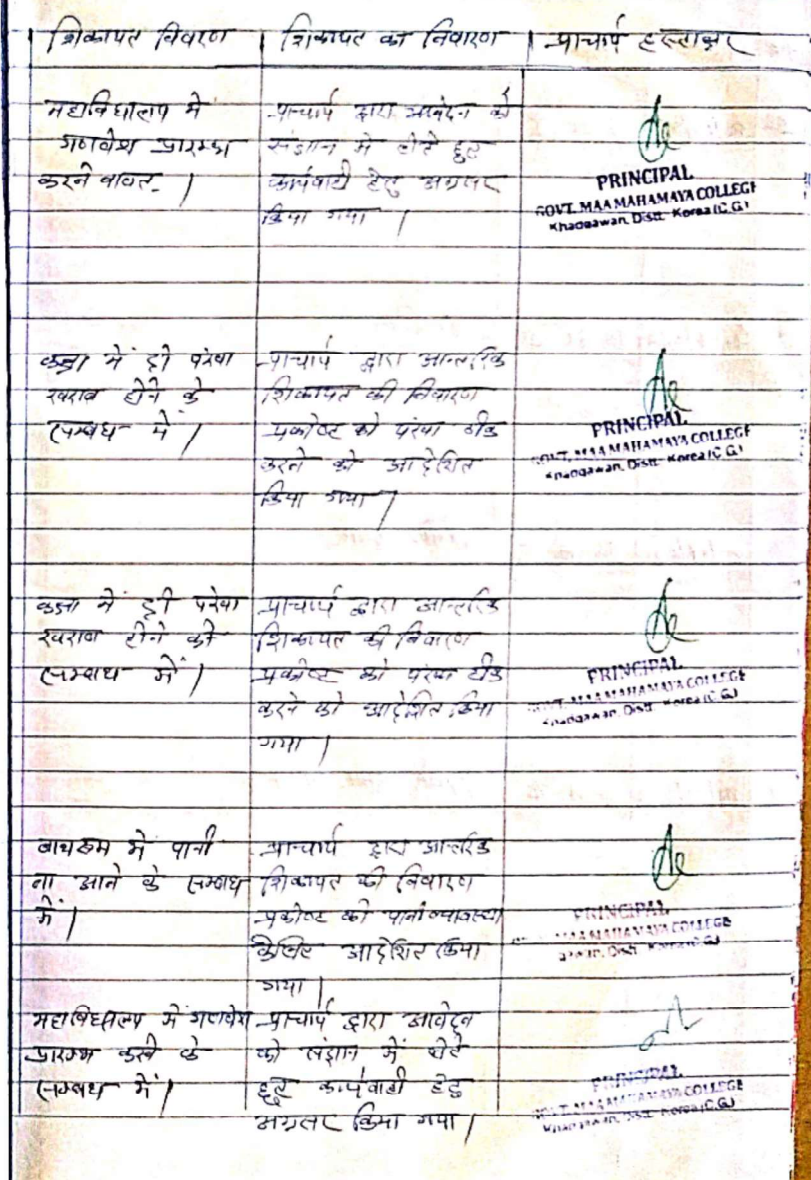 शिकायत विवरण | शिकायत का निवारण | प्राचार्य हस्ताक्षर
महाविद्यालय में
गणवेश प्रारम्भ
करने बावत ।
प्राचार्य द्वारा आवेदन को
संज्ञान में लेते हुए
कार्यवाही हेतु अग्रसर
किया गया ।
PRINCIPAL
GOVT. MAA MAHAMAYA COLLEGE
Khadgawan, Distt. Korea (C.G.)
कक्षा में ही पंखा
खराब होने के
सम्बंध में ।
प्राचार्य द्वारा आन्तरिक
शिकायत की निवारण
प्रकोष्ट को पंखा ठीक
करने को आदेशित
किया गया ।
PRINCIPAL
GOVT. MAA MAHAMAYA COLLEGE
Khadgawan, Distt. Korea (C.G.)
कक्षा में ही पंखा
खराब होने को
सम्बंध में ।
प्राचार्य द्वारा आन्तरिक
शिकायत की निवारण
प्रकोष्ट को पंखा ठीक
करने को आदेशित किया
गया ।
PRINCIPAL
GOVT. MAA MAHAMAYA COLLEGE
Khadgawan, Distt. Korea (C.G.)
बाथरूम में पानी
ना आने के सम्बंध
में ।
प्राचार्य द्वारा आन्तरिक
शिकायत की निवारण
प्रकोष्ट को पानी व्यावस्था
केलिए आदेशित किया
गया ।
PRINCIPAL
MAA MAHAMAYA COLLEGE
Distt. Korea (C.G.)
महाविद्यालय में गणवेश
प्रारम्भ करने के
सम्बंध में ।
प्राचार्य द्वारा आवेदन
को संज्ञान में लेते
हुए कार्यवाही हेतु
अग्रसर किया गया ।
PRINCIPAL
GOVT. MAA MAHAMAYA COLLEGE
Khadgawan, Distt. Korea (C.G.)